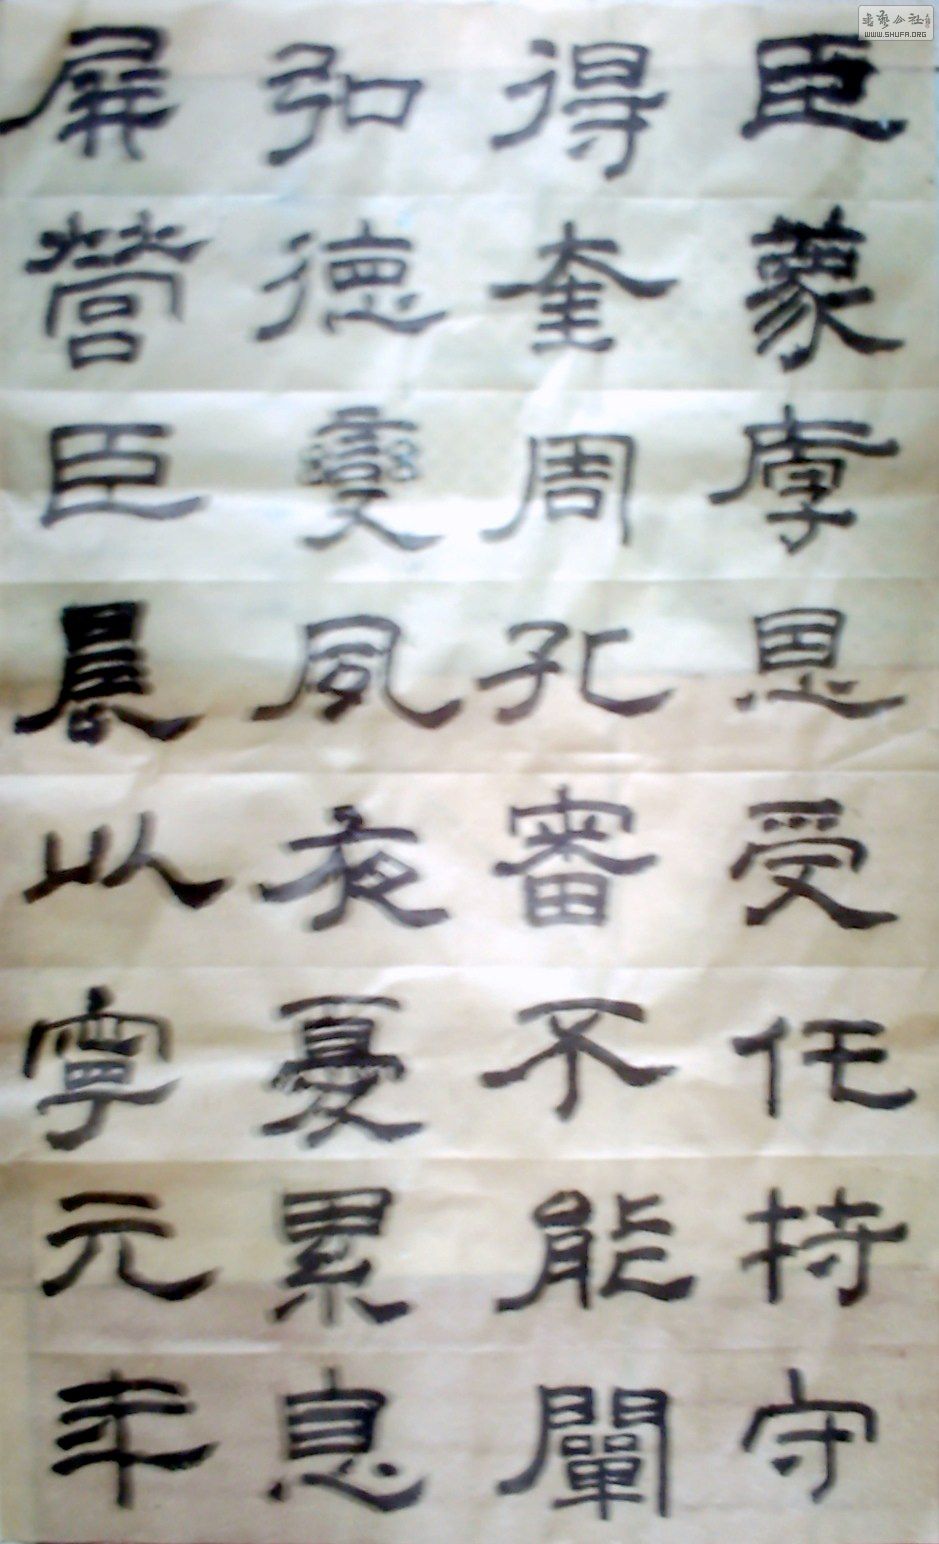 臣蒙厚恩受任持守
得奎周孔審不能闡
弘德變夙夜憂累息
屏營臣晨以寧元年
書藝公社
WWW.SHUFA.ORG